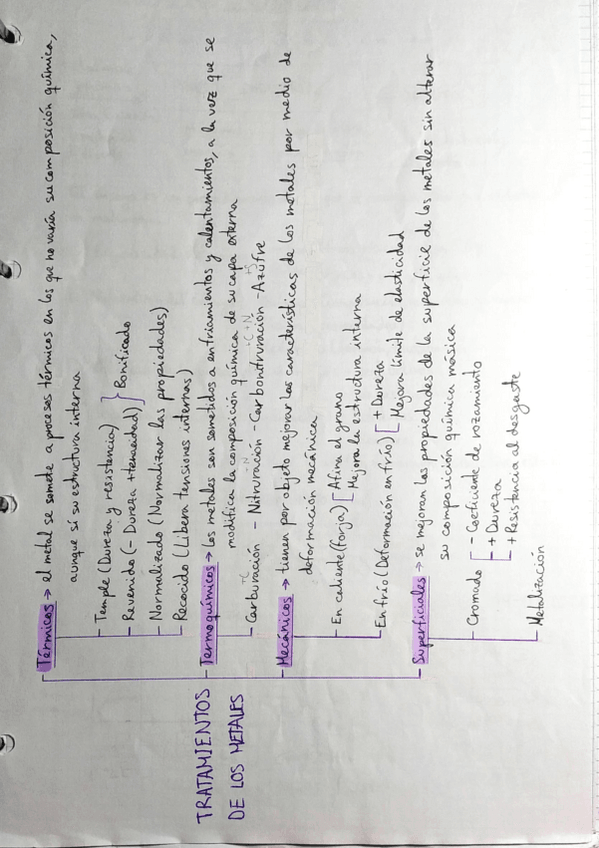 TRATAMIENTOS
DE LOS METALES
Térmicos → el metal se somete a procesos térmicos en los que no varía su composición química,
aunque sí su estructura interna
- Temple (Dureza y resistencia)
- Revenido (- Dureza + tenacidad)
Bonificado
- Normalizado (Normalizar las propiedades)
- Recocido (Libera tensiones internas)
Termoquímicos → los metales son sometidos a enfriamientos y calentamientos, a la vez que se
modifica la composición química de su capa externa
+C +N +C+N +S
- Carburación - Nitruración - Carbonitruración - Azufre
Mecánicos → tienen por objeto mejorar las características de los metales por medio de
deformación mecánica
- En caliente (forja) [ Afina el grano
Mejora la estructura interna
- En frío (Deformación en frío) [ + Dureza
Mejora límite de elasticidad
Superficiales → se mejoran las propiedades de la superficie de los metales sin alterar
su composición química másica
- Cromado [ - Coeficiente de rozamiento
+ Dureza
+ Resistencia al desgaste
- Metalización